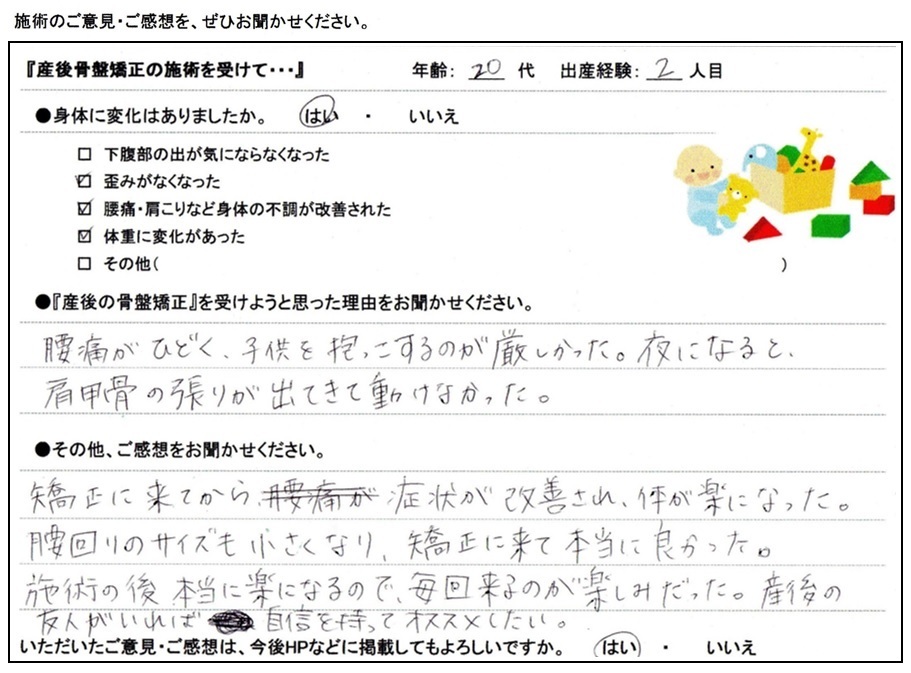 施術のご意見・ご感想を、ぜひお聞かせください。
『産後骨盤矯正の施術を受けて・・・』 年齢： 20 代 出産経験： 2 人目
●身体に変化はありましたか。 はい ・ いいえ
□ 下腹部の出が気にならなくなった
☑ 歪みがなくなった
☑ 腰痛・肩こりなど身体の不調が改善された
☑ 体重に変化があった
□ その他（ ）
●『産後の骨盤矯正』を受けようと思った理由をお聞かせください。
腰痛がひどく、子供を抱っこするのが厳しかった。夜になると、
肩甲骨の張りが出てきて動けなかった。
●その他、ご感想をお聞かせください。
矯正に来てから、腰痛が 症状が改善され、体が楽になった。
腰回りのサイズも小さくなり、矯正に来て本当に良かった。
施術の後、本当に楽になるので、毎回来るのが楽しみだった。産後の
友人がいれば 自信を持ってオススメしたい。
いただいたご意見・ご感想は、今後HPなどに掲載してもよろしいですか。 はい ・ いいえ